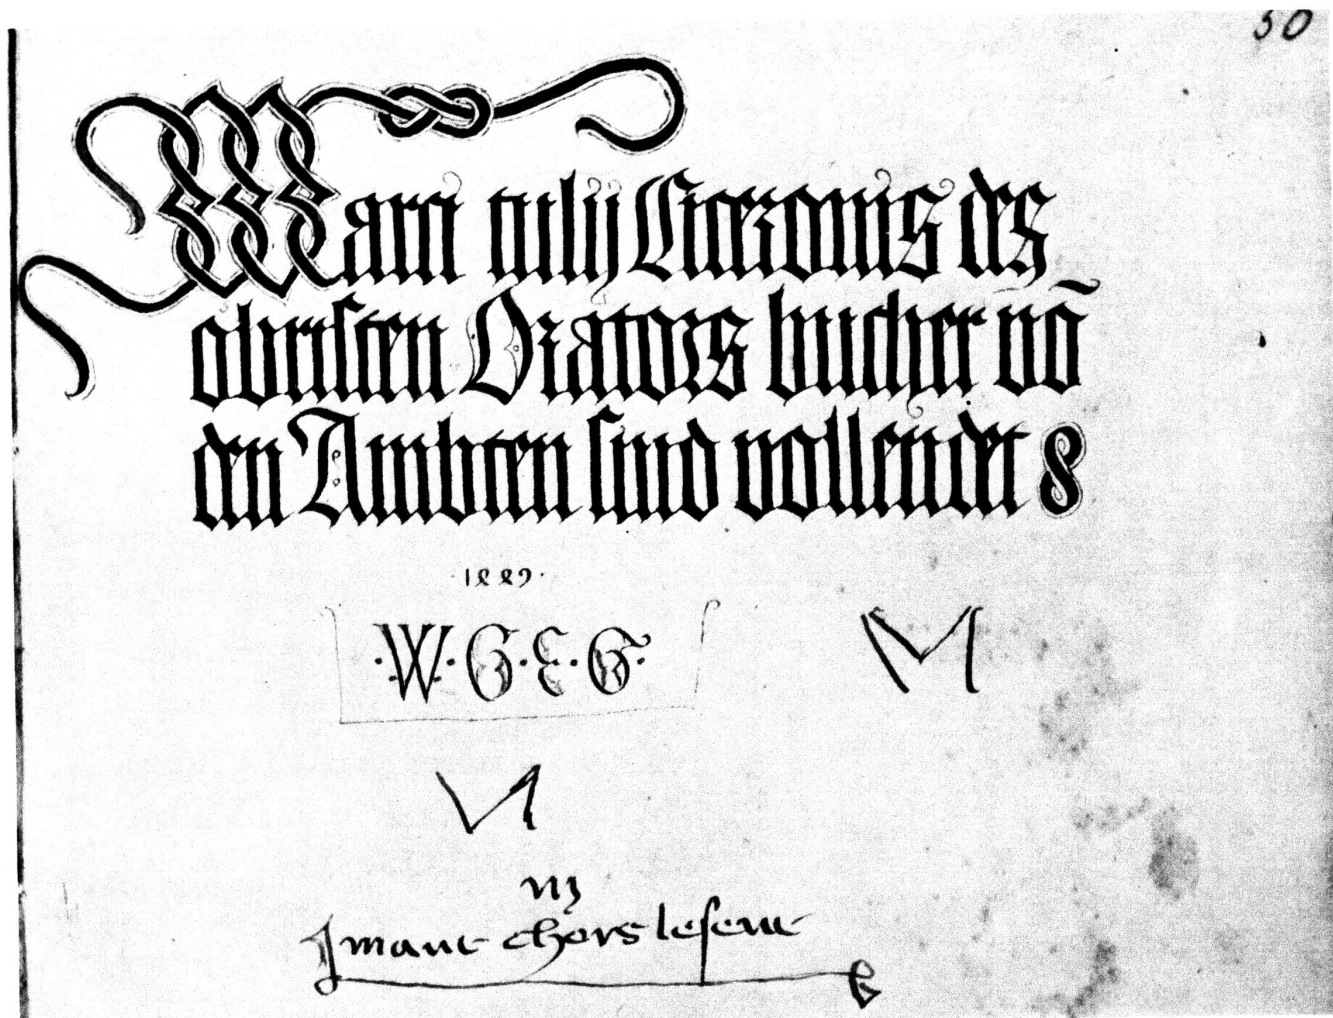 50
Marci tulij Ciceronis des
obristen Orators bucher vō
den Ambten sind vollendet
1489
·W·G·E·G·
nȷ
Jmant chors lesent